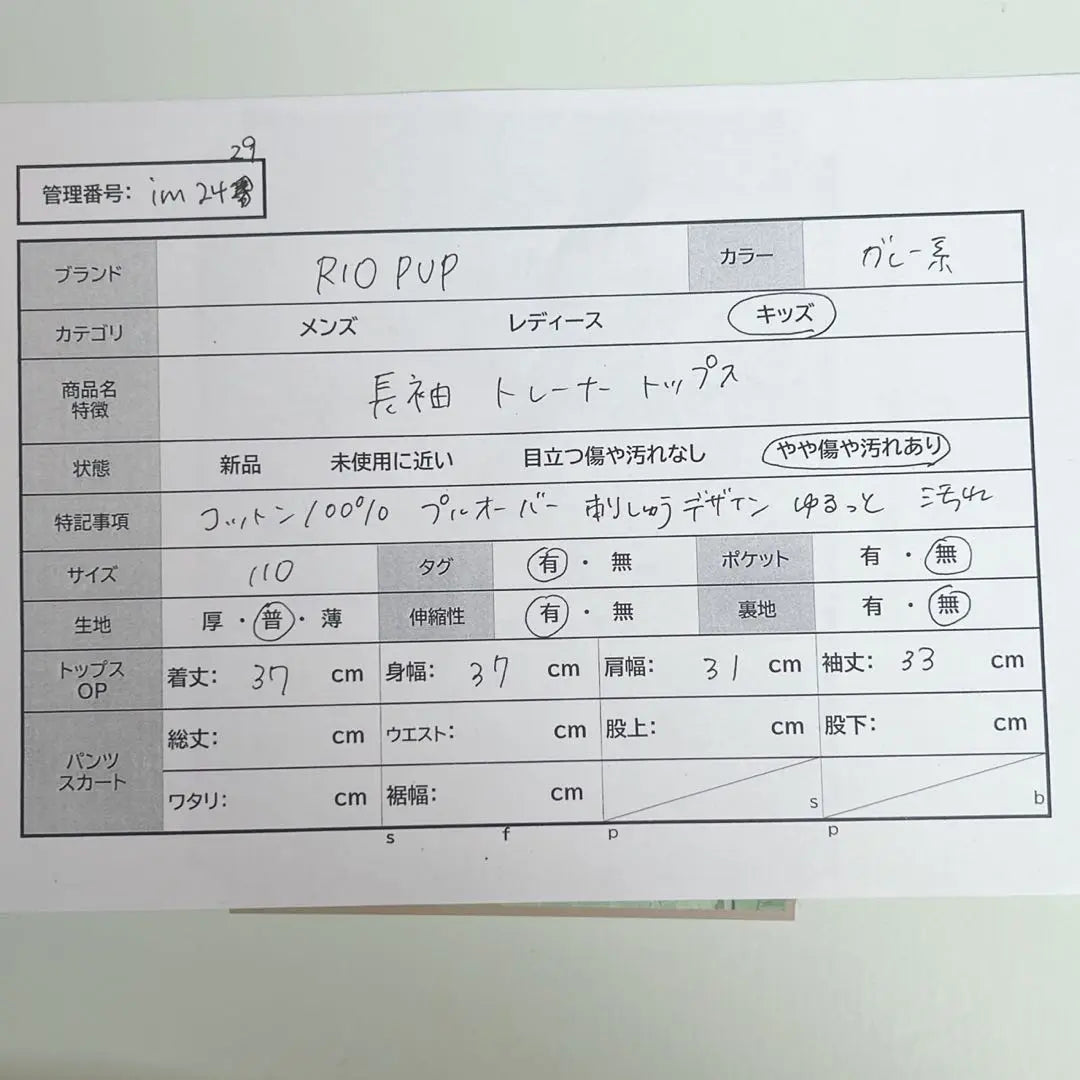 29
管理番号: im 24
ブランド RIO PUP カラー グレー系
カテゴリ メンズ レディース キッズ
商品名 特徴 長袖 トレーナー トップス
状態 新品 未使用に近い 目立つ傷や汚れなし やや傷や汚れあり
特記事項 コットン100% プルオーバー 刺しゅうデザイン ゆるっと 汚れ
サイズ 110 タグ 有・無 ポケット 有・無
生地 厚・普・薄 伸縮性 有・無 裏地 有・無
トップス OP 着丈: 37 cm 身幅: 37 cm 肩幅: 31 cm 袖丈: 33 cm
パンツ スカート 総丈: cm ウエスト: cm 股上: cm 股下: cm
ワタリ: cm 裾幅: cm s b
s f p p